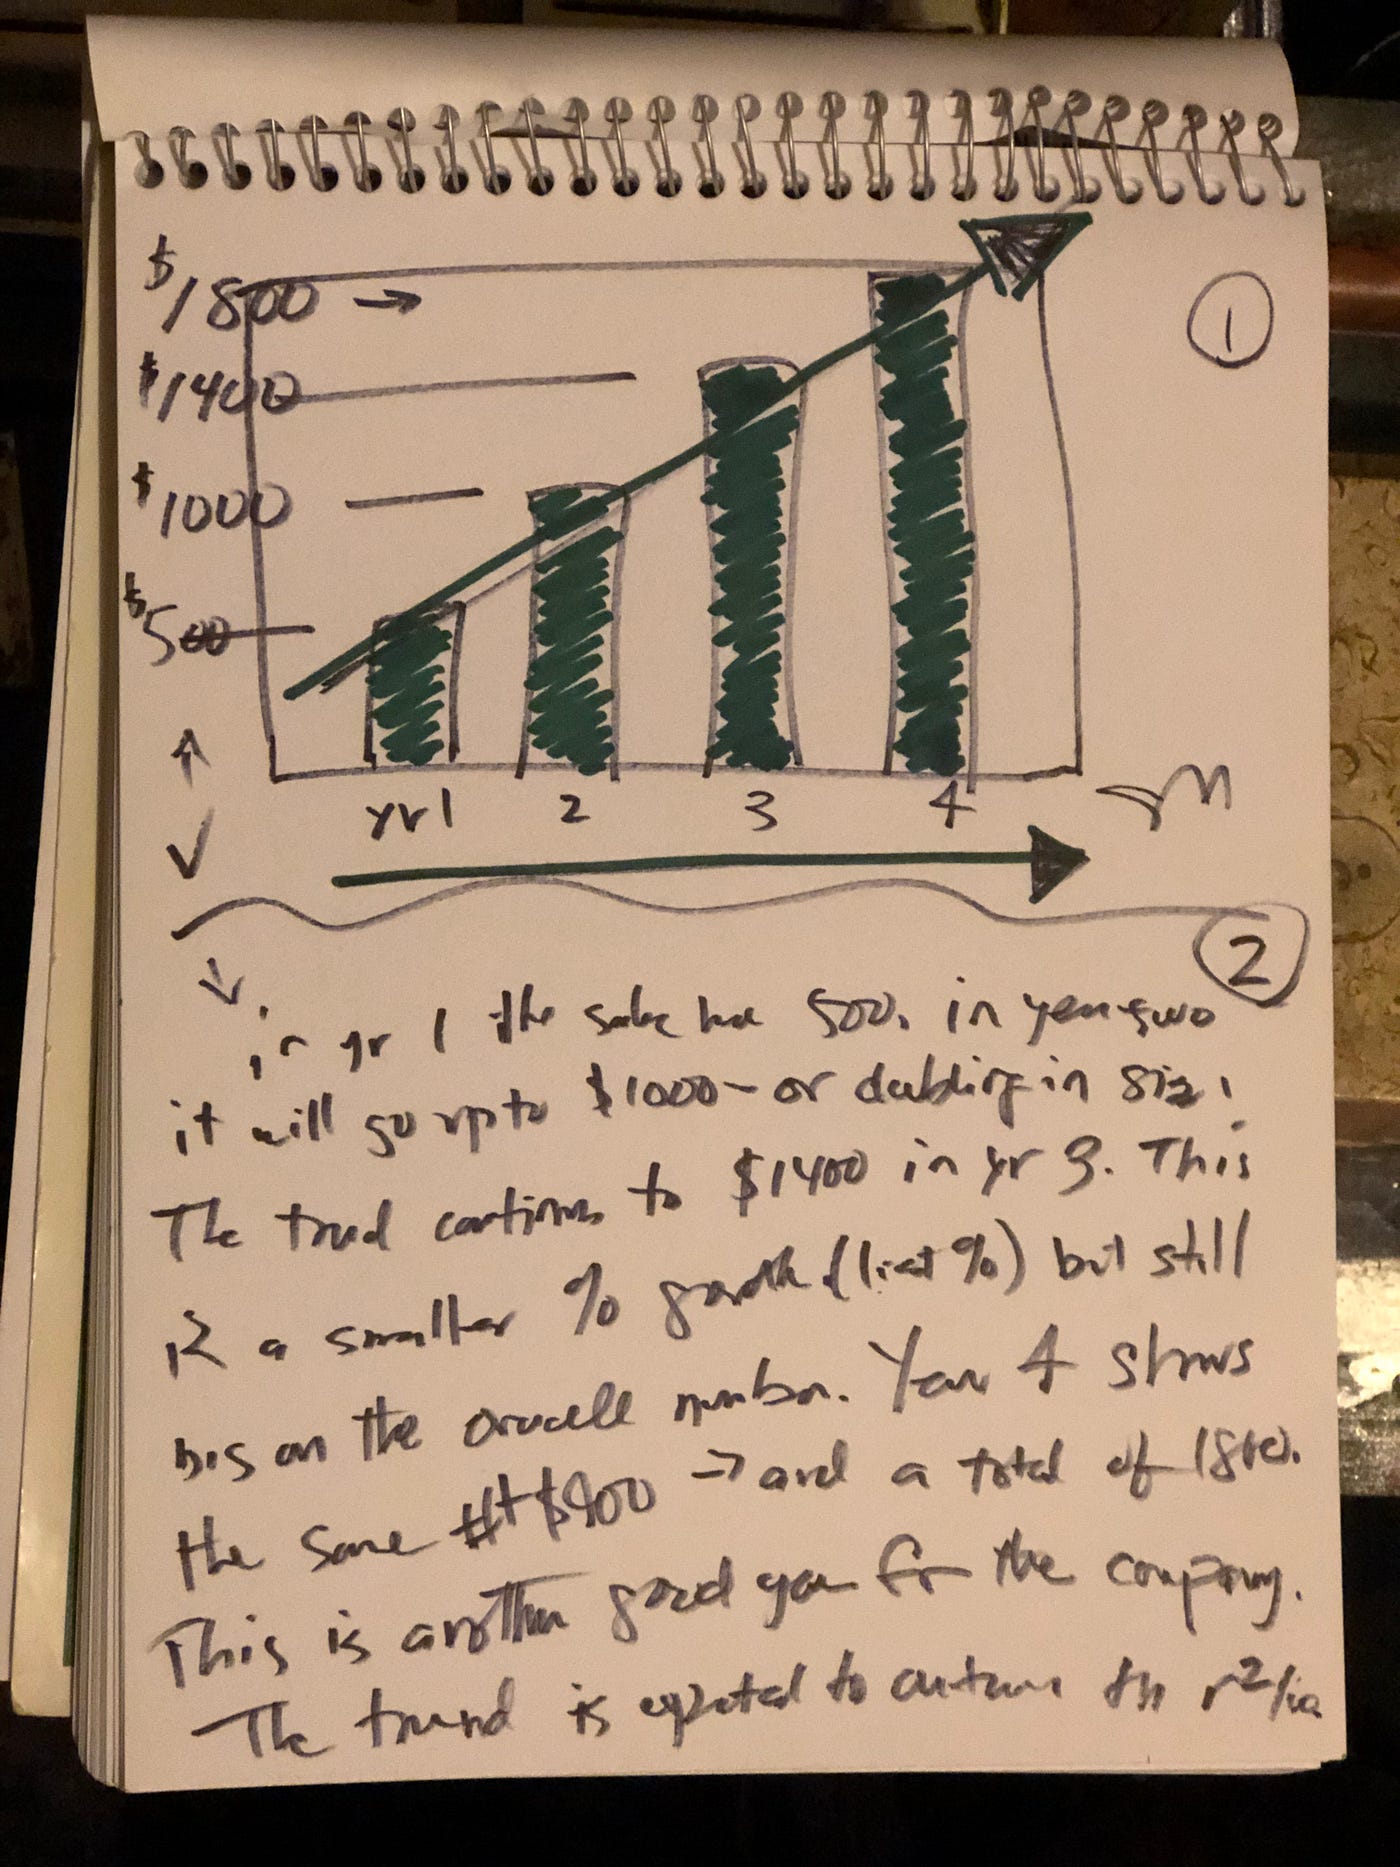 $1800 →
$1400
$1000
$500
yr1 2 3 4
1
2
in yr 1 the sales 500. in year two
it will go up to $1000 - or doubling in size.
The trend continues to $1400 in yr 3. This
is a smaller % growth (list %) but still
big on the overall number. Year 4 shows
the same #+$400 → and a total of 1800.
This is another good year for the company.
The trend is expected to continue